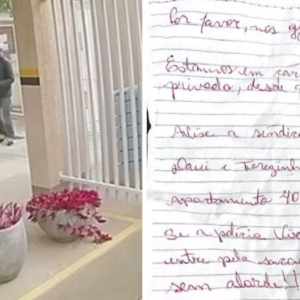 Por favor, nos
Estamos em
privado, desde
Avise a síndic
Davi e Terezinh
Apartamento 40
se a polícia
entre pela
sem alarde!!